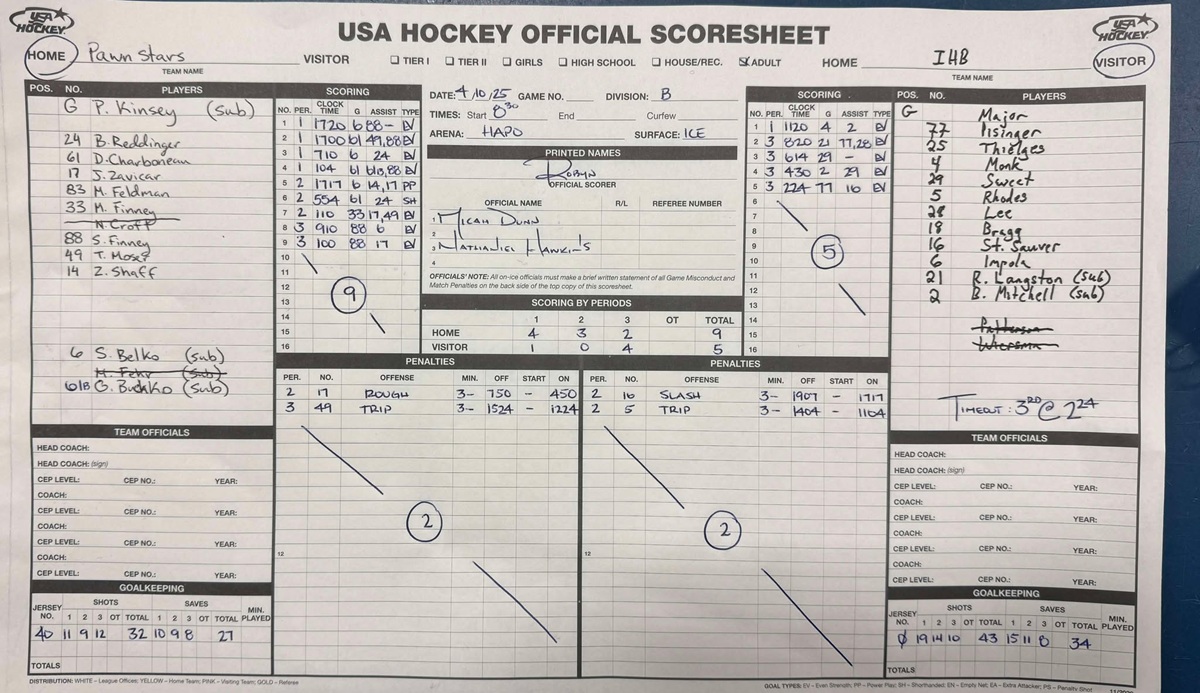 USA HOCKEY
USA HOCKEY OFFICIAL SCORESHEET
USA HOCKEY
HOME Pawn Stars VISITOR
TEAM NAME
☐ TIER I ☐ TIER II ☐ GIRLS ☐ HIGH SCHOOL ☐ HOUSE/REC. ☑ ADULT
HOME IHB VISITOR
TEAM NAME
POS. NO. PLAYERS
G P. Kinsey (sub)
24 B. Reddinger
61 D. Charboneau
17 J. Zavicar
83 M. Feldman
33 M. Finney
N. Croft
88 S. Finney
49 T. Moser
14 Z. Shaff
6 S. Belko (sub)
M. Fehr (sub)
61B G. Buchko (sub)
SCORING
NO. PER. CLOCK TIME G ASSIST TYPE
1 1 1720 6 88- EV
2 1 1700 61 49,88 EV
3 1 710 6 24 EV
4 1 104 61 61B,88 EV
5 2 1717 6 14,17 PP
6 2 554 61 24 SH
7 2 110 33 17,49 EV
8 3 910 88 6 EV
9 3 100 88 17 EV
10
11
12
13
14
15
16
9
DATE: 4/10/25 GAME NO. DIVISION: B
TIMES: Start 8:30 End Curfew
ARENA: HAPO SURFACE: ICE
PRINTED NAMES
Robyn
OFFICIAL SCORER
OFFICIAL NAME R/L REFEREE NUMBER
1 Micah Dunn
2
3 Nathaniel Hawkins
4
OFFICIALS' NOTE: All on-ice officials must make a brief written statement of all Game Misconduct and
Match Penalties on the back side of the top copy of this scoresheet.
SCORING BY PERIODS
1 2 3 OT TOTAL
HOME 4 3 2 9
VISITOR 1 0 4 5
SCORING
NO. PER. CLOCK TIME G ASSIST TYPE
1 1 1120 4 2 EV
2 3 820 21 77,28 EV
3 3 614 29 - EV
4 3 430 2 29 EV
5 3 224 77 16 EV
6
7
8
9
10
11
12
13
14
15
16
5
POS. NO. PLAYERS
G Major
77 Pisinger
25 Thielges
4 Monk
29 Sweet
5 Rhodes
28 Lee
18 Bragg
16 St. Sauver
6 Impola
21 R. Langston (sub)
2 B. Mitchell (sub)
Patterson
Wiersma
TIMEOUT: 3RD @ 2 24
PENALTIES
PER. NO. OFFENSE MIN. OFF START ON
2 17 ROUGH 3- 750 - 450
3 49 TRIP 3- 1524 - 1224
12
2
PENALTIES
PER. NO. OFFENSE MIN. OFF START ON
2 16 SLASH 3- 1907 - 1717
2 5 TRIP 3- 1404 - 1104
12
2
TEAM OFFICIALS
HEAD COACH:
HEAD COACH: (sign)
CEP LEVEL: CEP NO.: YEAR:
COACH:
CEP LEVEL: CEP NO.: YEAR:
COACH:
CEP LEVEL: CEP NO.: YEAR:
COACH:
CEP LEVEL: CEP NO.: YEAR:
GOALKEEPING
JERSEY NO. SHOTS 1 2 3 OT TOTAL SAVES 1 2 3 OT TOTAL MIN. PLAYED
40 11 9 12 32 10 9 8 27
TOTALS
TEAM OFFICIALS
HEAD COACH:
HEAD COACH: (sign)
CEP LEVEL: CEP NO.: YEAR:
COACH:
CEP LEVEL: CEP NO.: YEAR:
COACH:
CEP LEVEL: CEP NO.: YEAR:
COACH:
CEP LEVEL: CEP NO.: YEAR:
GOALKEEPING
JERSEY NO. SHOTS 1 2 3 OT TOTAL SAVES 1 2 3 OT TOTAL MIN. PLAYED
Ø 19 14 10 43 15 11 8 34
TOTALS
DISTRIBUTION: WHITE – League Offices; YELLOW – Home Team; PINK – Visiting Team; GOLD – Referee
GOAL TYPES: EV – Even Strength; PP – Power Play; SH – Shorthanded; EN – Empty Net; EA – Extra Attacker; PS – Penalty Shot